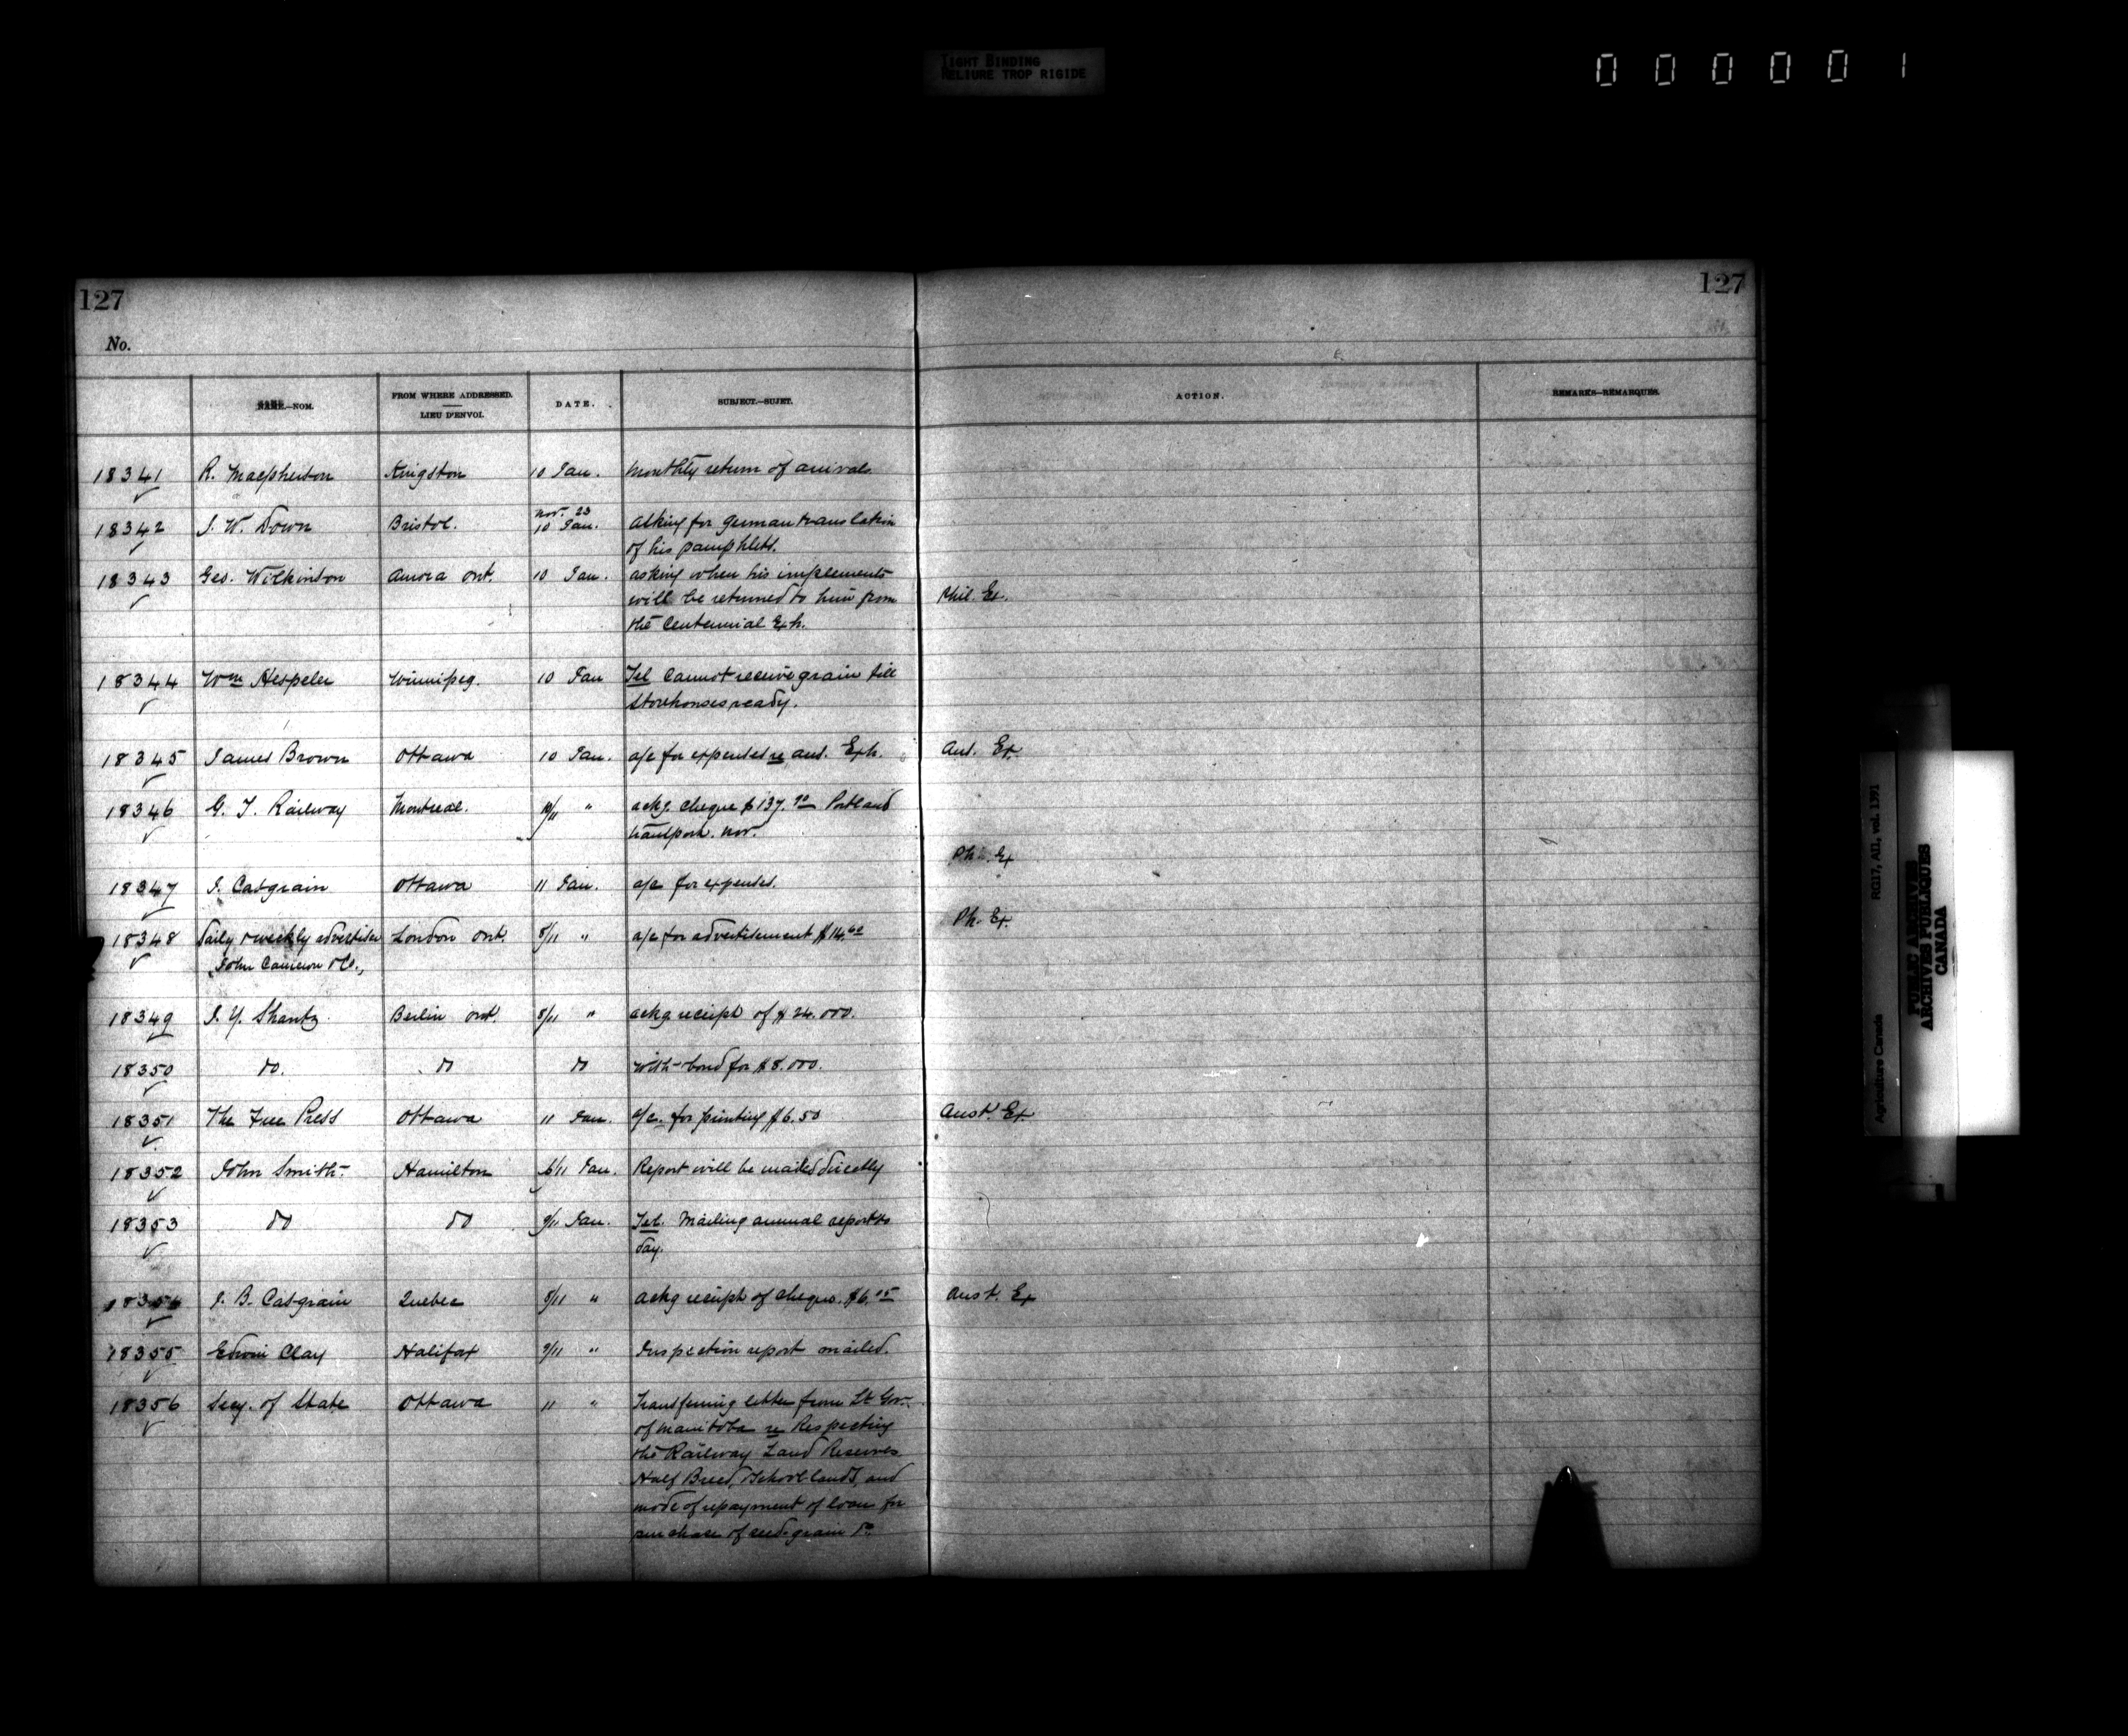 TIGHT BINDING
RELIURE TROP RIGIDE
000001
127 127
No.
NAME.—NOM. FROM WHERE ADDRESSED. LIEU D'ENVOI. DATE. SUBJECT.—SUJET. ACTION. REMARKS—REMARQUES.
18341 R. Macpherson Kingston 10 Jan. Monthly return of arrivals
18342 J. W. Down Bristol. Nov. 23 10 Jan. Asking for German translation
of his pamphlets.
18343 Geo. Wilkinson Aurora Ont. 10 Jan. asking when his implements
will be returned to him from Phil. Ex.
the Centennial Exh.
18344 Wm Hespeler Winnipeg. 10 Jan Tel Cannot receive grain till
Storehouses ready.
18345 James Brown Ottawa 10 Jan. a/c for expenses re aus. Exh. Aus. Ex.
18346 G. T. Railway Montreal. 10/11 " ackg. cheque $137. Portland
transport. Nov.
Ph. Ex
18347 J. Casgrain Ottawa 11 Jan. a/c for expenses.
Ph. Ex.
18348 Daily & weekly advertiser London Ont. 8/11 " a/c for advertisement $14.60
John Cameron & Co.,
18349 J. Y. Shantz Berlin Ont. 8/11 " ackg receipt of $24.000.
18350 do. do do with bond for $8.000.
18351 The Free Press Ottawa 11 Jan. a/c. for printing $6.50 Aust. Ex.
18352 John Smith Hamilton 6/11 Jan. Report will be mailed directly
18353 do do 9/11 Jan. Tel. Mailing annual report to
day.
18354 J. B. Casgrain Quebec 8/11 " Ackg receipt of cheque. $6. Aust. Ex
18355 Edwin Clay Halifax 9/11 " Inspection report mailed.
18356 Secy. of State Ottawa 11 " Transferring letter from Lt Gov.
of Manitoba re Respecting
the Railway Land Reserves
Half Breed, & School lands, and
mode of repayment of loan for
purchase of seed grain
Agriculture Canada RG17, AII, vol. 1391
PUBLIC ARCHIVES
ARCHIVES PUBLIQUES
CANADA